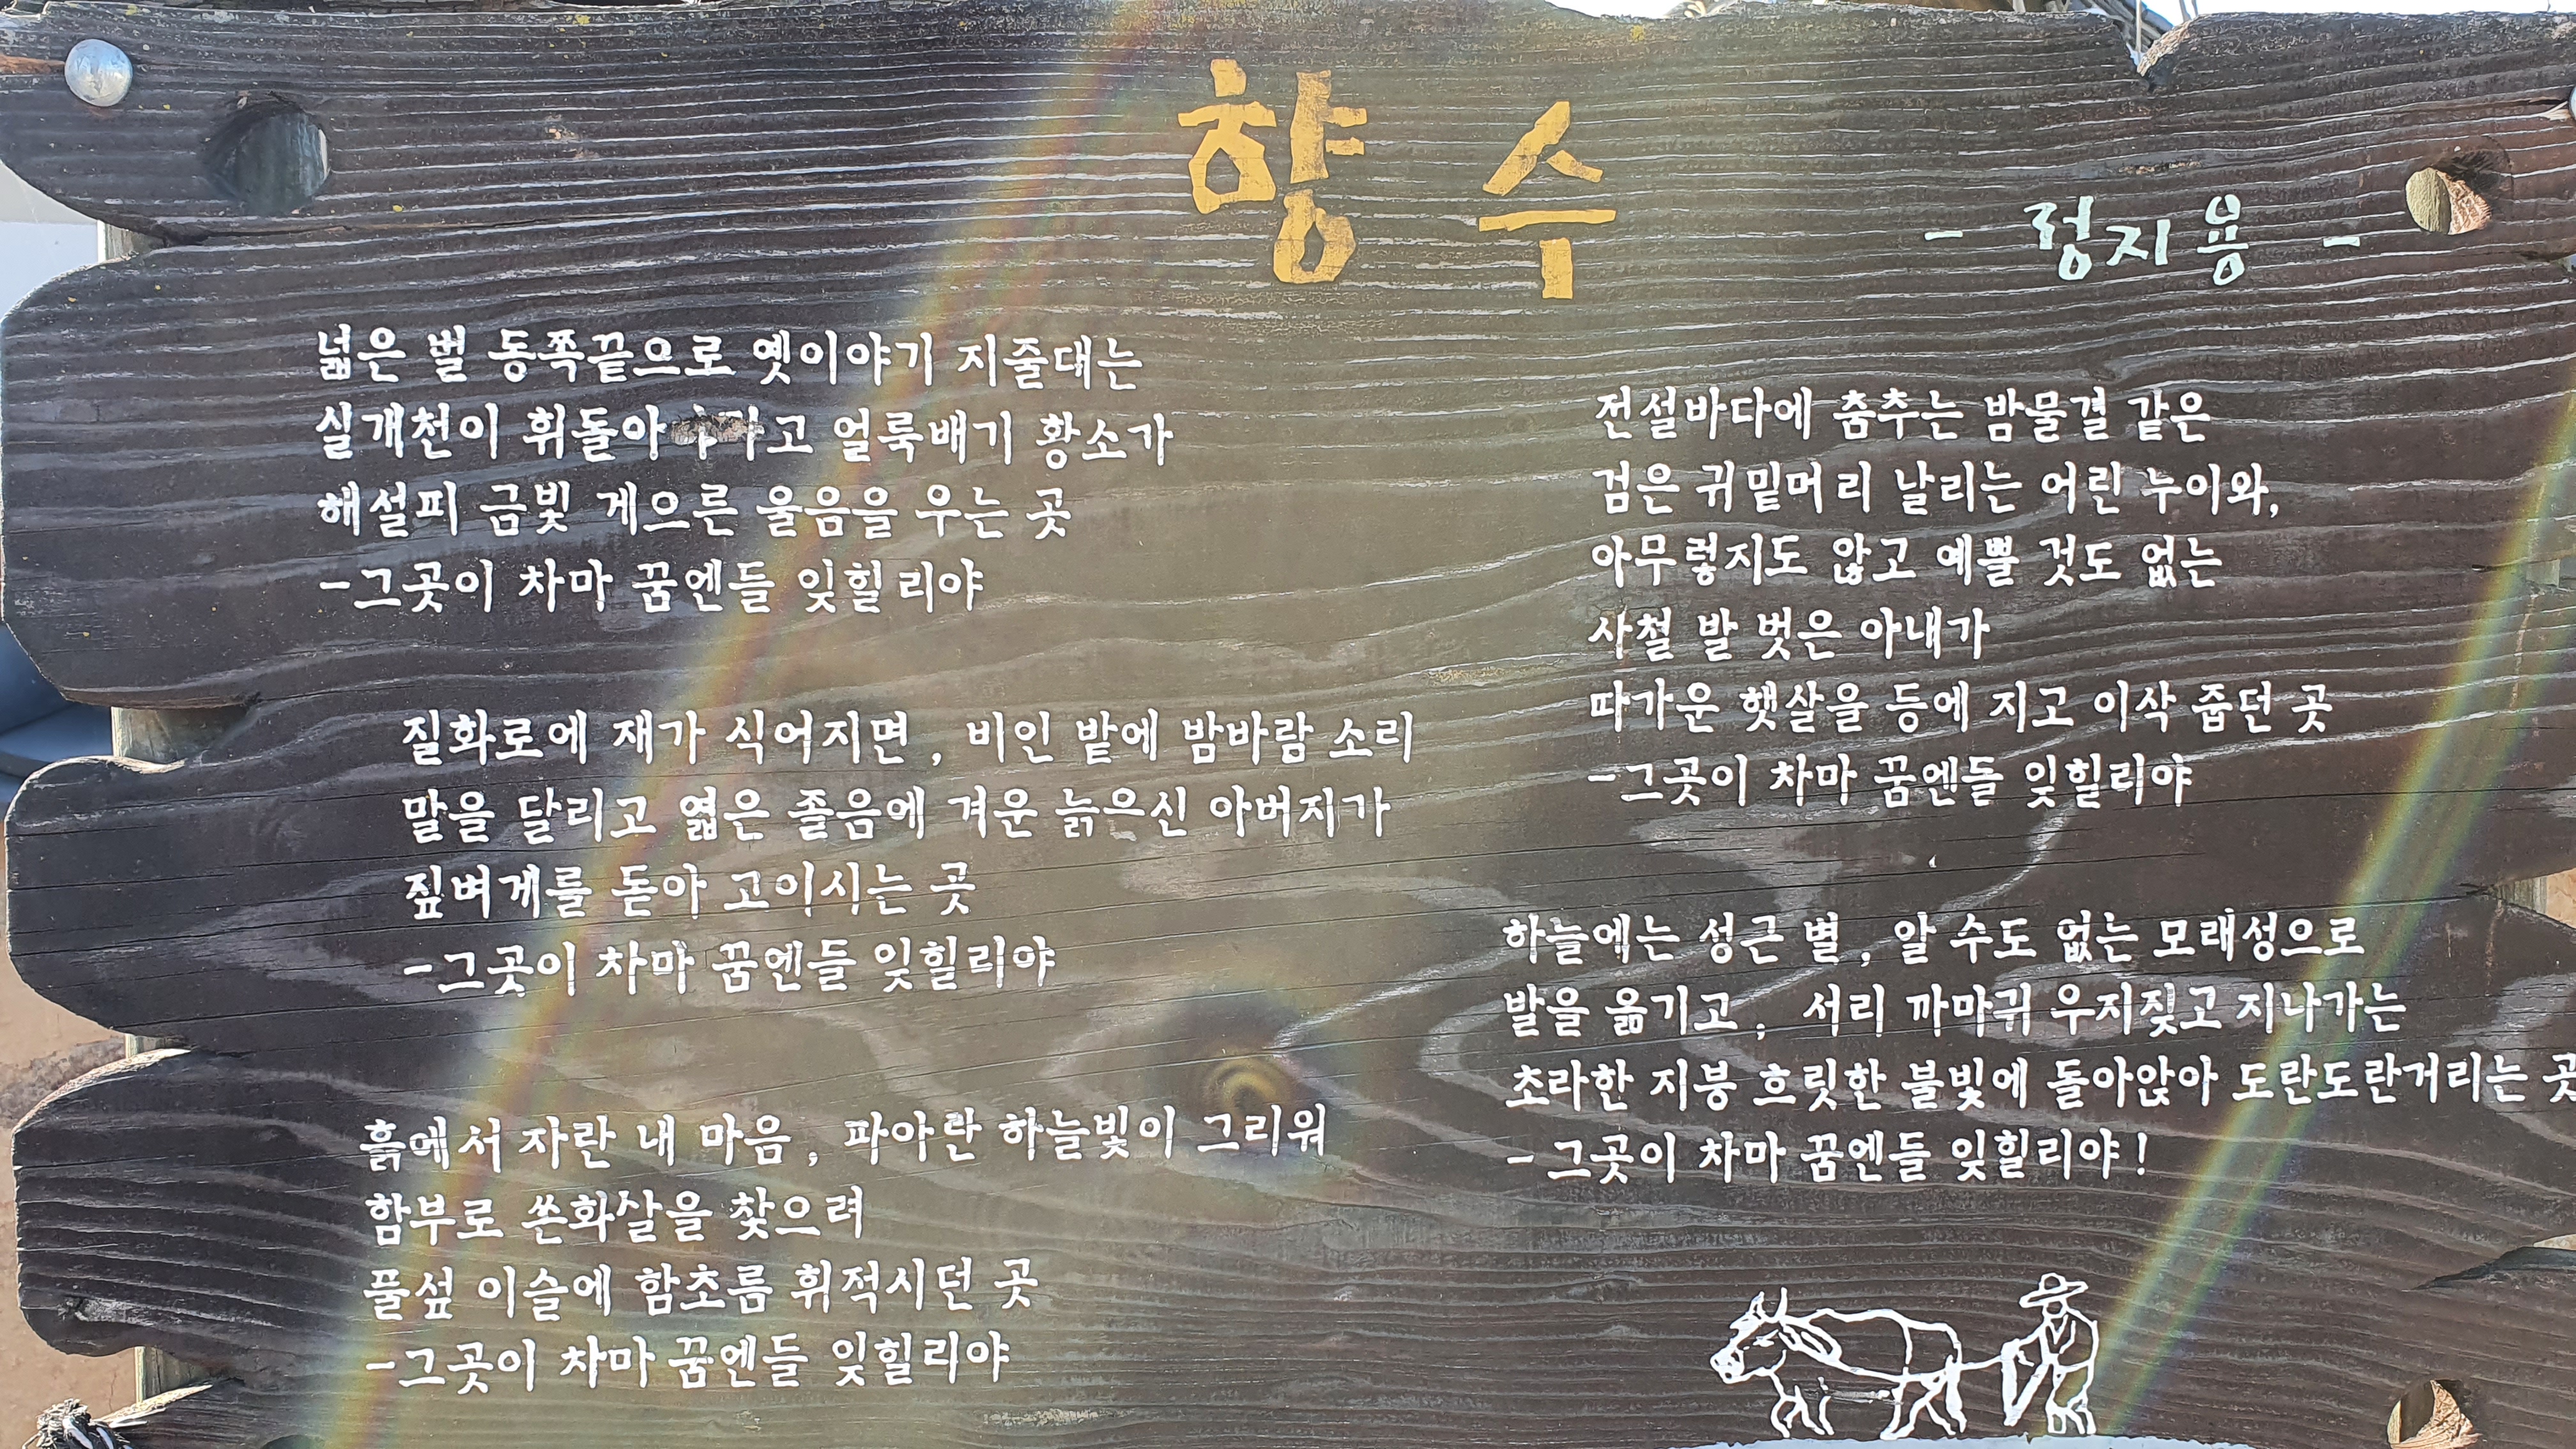 향수
- 정지용 -
넓은 벌 동쪽끝으로 옛이야기 지줄대는
실개천이 휘돌아 고 얼룩배기 황소가
해설피 금빛 게으른 울음을 우는 곳
-그곳이 차마 꿈엔들 잊힐리야
질화로에 재가 식어지면, 비인 밭에 밤바람 소리
말을 달리고 엷은 졸음에 겨운 늙으신 아버지가
짚벼개를 돋아 고이시는 곳
-그곳이 차마 꿈엔들 잊힐리야
흙에서 자란 내 마음, 파아란 하늘빛이 그리워
함부로 쏜화살을 찾으려
풀섶 이슬에 함초롬 휘적시던 곳
-그곳이 차마 꿈엔들 잊힐리야
전설바다에 춤추는 밤물결 같은
검은 귀밑머리 날리는 어린 누이와,
아무렇지도 않고 예쁠 것도 없는
사철 발 벗은 아내가
따가운 햇살을 등에 지고 이삭 줍던 곳
-그곳이 차마 꿈엔들 잊힐리야
하늘에는 성근 별, 알 수도 없는 모래성으로
발을 옮기고, 서리 까마귀 우지짖고 지나가는
초라한 지붕 흐릿한 불빛에 돌아앉아 도란도란거리는 곳
- 그곳이 차마 꿈엔들 잊힐리야!